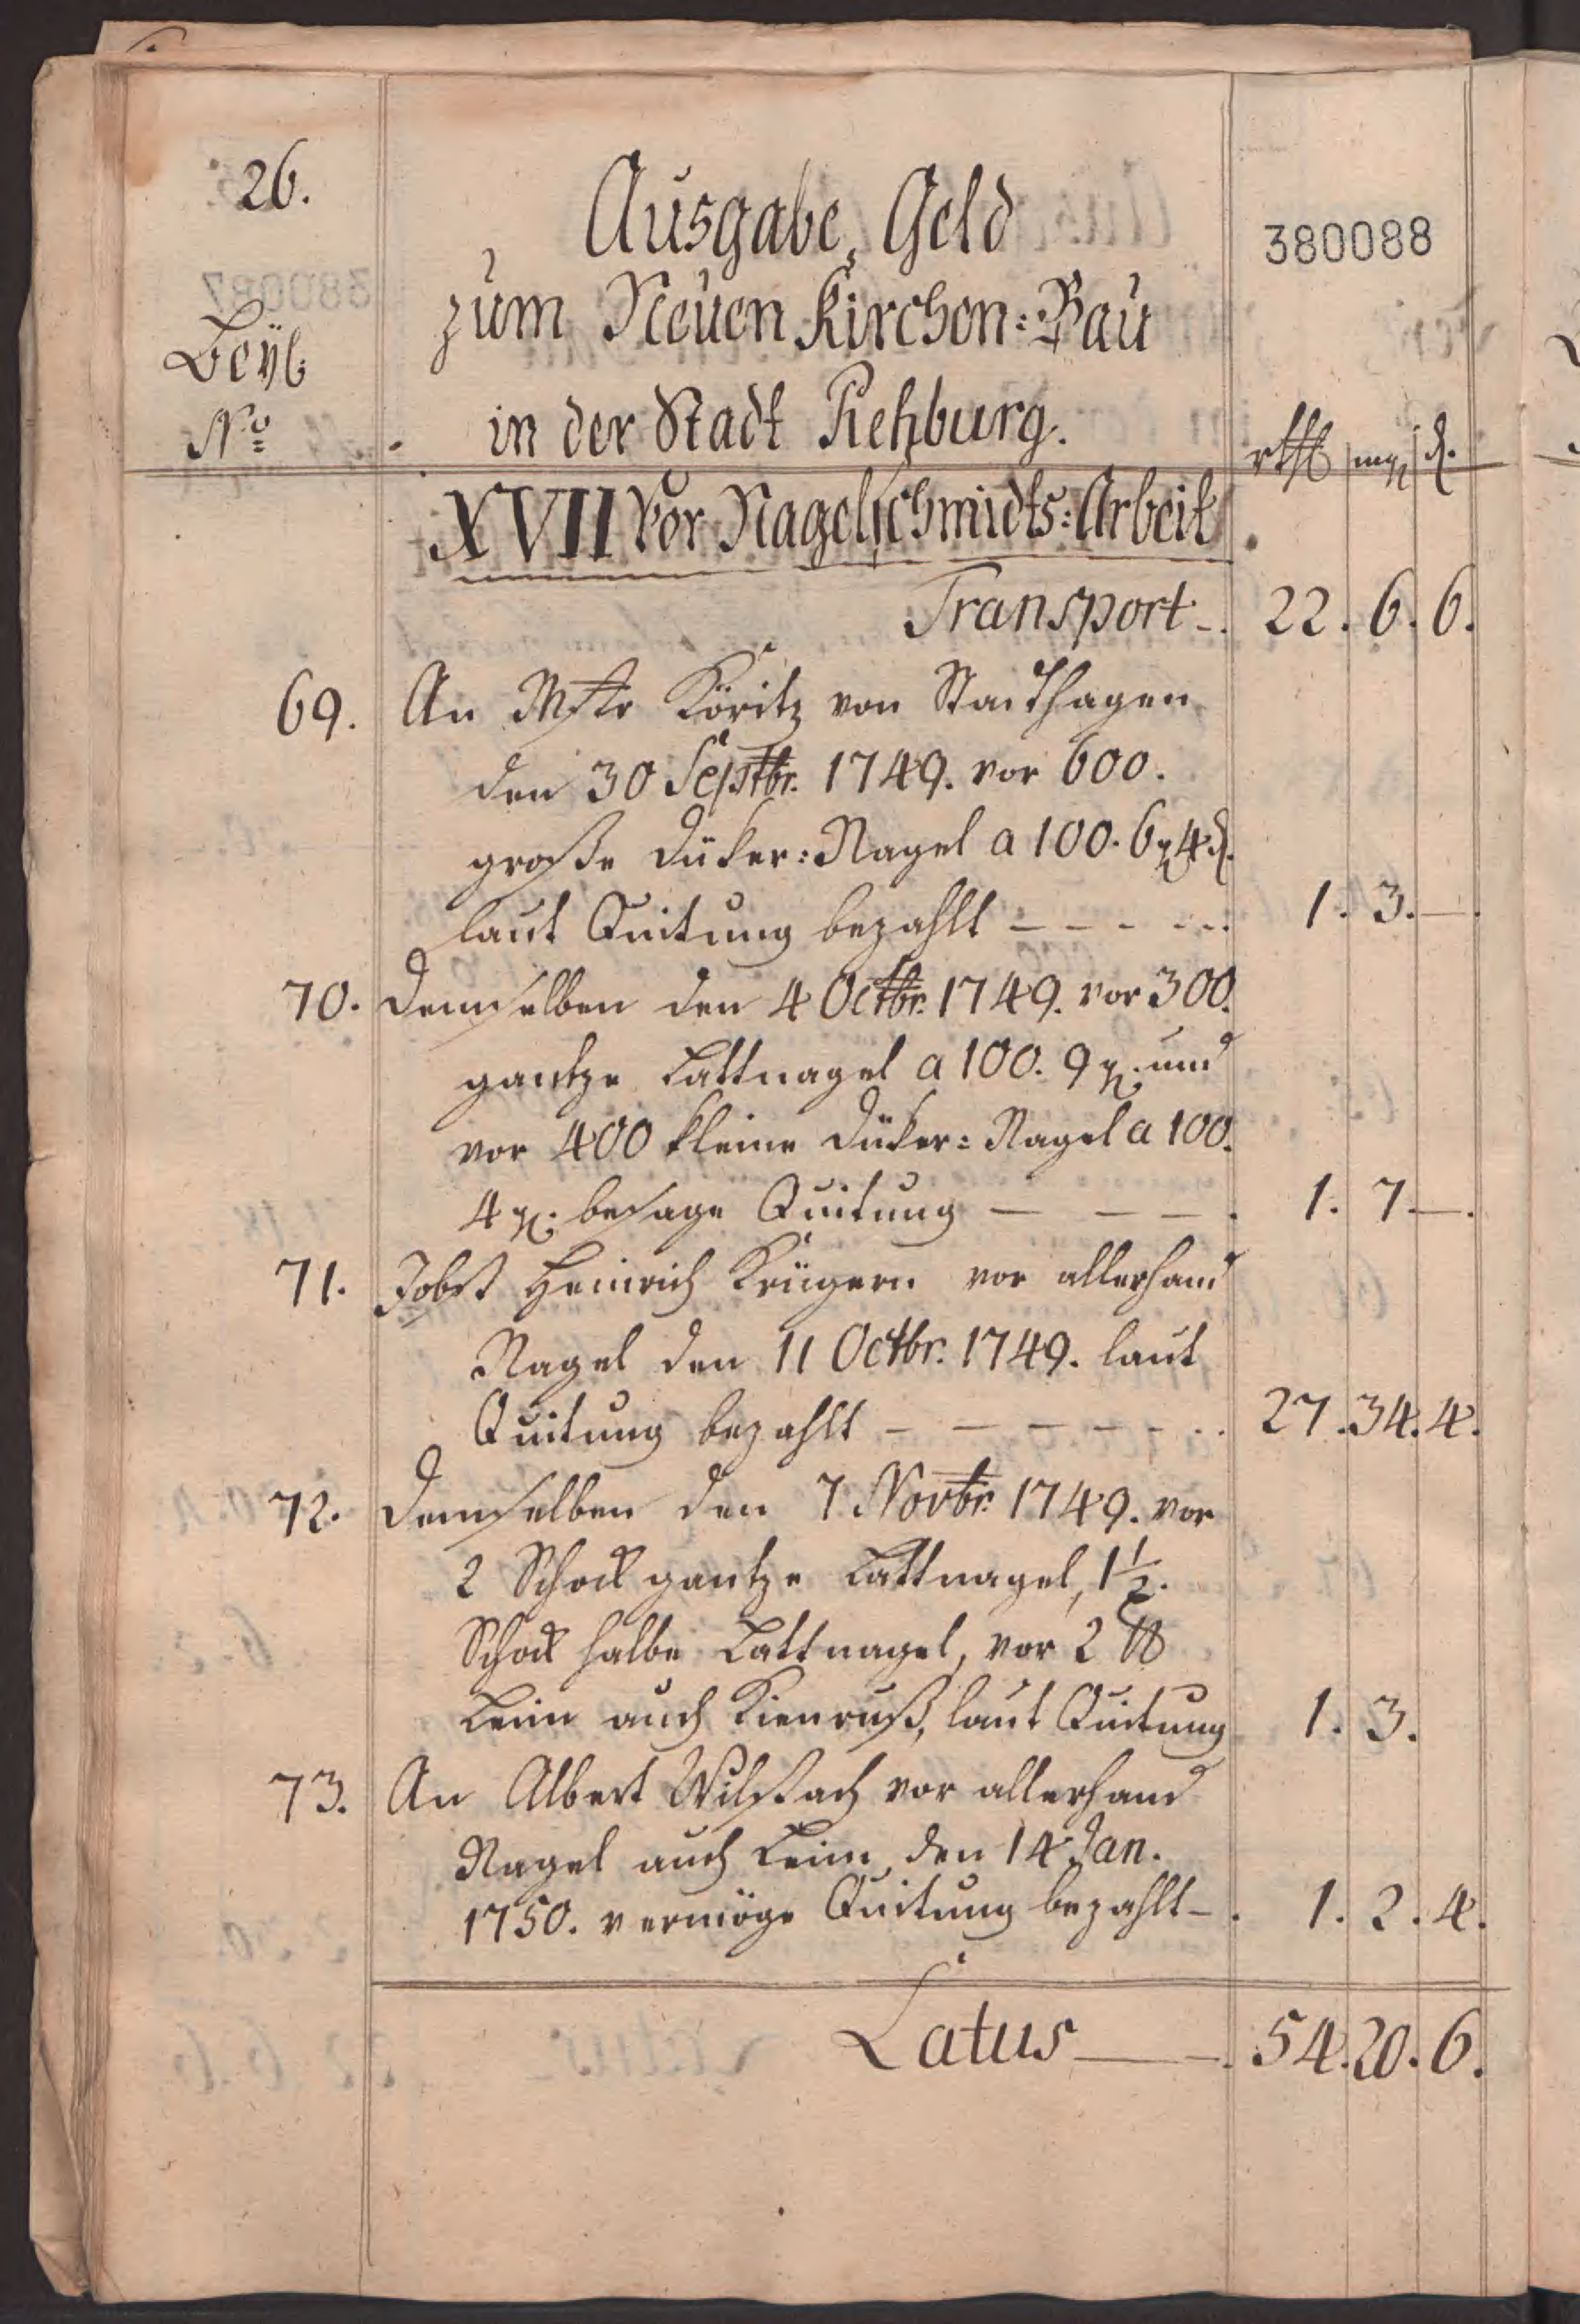 26.
Ausgabe, Geld
380088
zum Neuen Kirchen=Bau
Beyl:
No
in der Stadt Rehburg.
rthl mg d.
XVII Vor Nagelschmidts=Arbeit
Transport 22. 6. 6.
69. An Mstr Köritz von Stadthagen
den 30 Septbr. 1749. vor 600.
große Düker=Nagel a 100. 6 g 4 d.
laut Quitung bezahlt - - - - 1. 3. —.
70. Demselben den 4 Octbr. 1749. vor 300.
gantze Lattnagel a 100. 9 g. und
vor 400 kleine Düker=Nagel a 100.
4 g. besage Quitung — — — 1. 7. —.
71. Jobst Heinrich Krügern vor allerhand
Nagel den 11 Octbr. 1749. laut
Quitung bezahlt - - - - - - 27. 34. 4.
72. Demselben den 7 Novbr. 1749. vor
2 Schock gantze Lattnagel, 1½.
Schock halbe Lattnagel, vor 2 ℔
Leim auch Kienruß, laut Quitung 1. 3.
73. An Albert Wilstach vor allerhand
Nagel auch Leim, den 14 Jan.
1750. vermöge Quitung bezahlt - 1. 2. 4.
Latus —— 54. 20. 6.